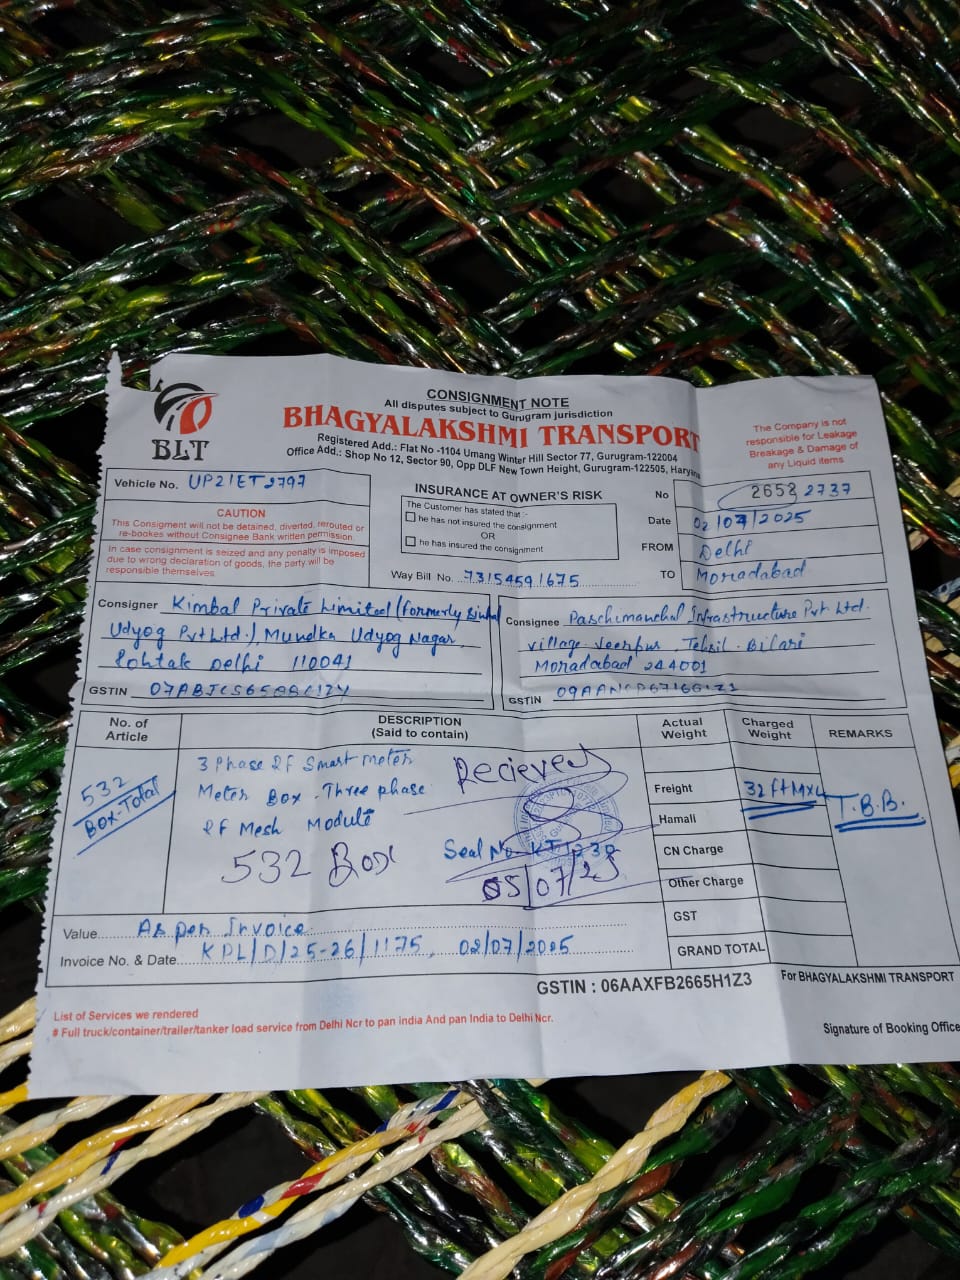 CONSIGNMENT NOTE
All disputes subject to Gurugram jurisdiction
BLT
BHAGYALAKSHMI TRANSPORT
Registered Add.: Flat No -1104 Umang Winter Hill Sector 77, Gurugram-122004
Office Add.: Shop No 12, Sector 90, Opp DLF New Town Height, Gurugram-122505, Haryana
The Company is not
responsible for Leakage
Breakage & Damage of
any Liquid items
Vehicle No. UP21ET2797
CAUTION
This Consigment will not be detained, diverted, rerouted or
re-bookes without Consignee Bank written permission.
In case consignment is seized and any penalty is imposed
due to wrong declaration of goods, the party will be
responsible themselves.
INSURANCE AT OWNER'S RISK
The Customer has stated that :-
he has not insured the consignment
OR
he has insured the consignment
Way Bill No. 73154591675
No 2652 2737
Date 02/07/2025
FROM Delhi
TO Moradabad
Consigner Kimbal Private Limited (formerly
Udyog Pvt Ltd.), Mundka Udyog Nagar,
Rohtak Delhi 110041
GSTIN
Consignee Paschimanchal Infrastructure Pvt Ltd.
village Tehsil Bilari
Moradabad 244001
GSTIN
No. of
Article
DESCRIPTION
(Said to contain)
Actual
Weight
Charged
Weight
REMARKS
532
Box-Total
3 Phase RF Smart meter
Meter Box Three phase
RF Mesh Module
532 Box
Recieved
Seal No
05/07/25
Freight 32 ft MXL
Hamali
CN Charge
Other Charge
GST
GRAND TOTAL
T.B.B.
Value As per Invoice
Invoice No. & Date KPL/D/25-26/1175, 02/07/2025
GSTIN : 06AAXFB2665H1Z3
For BHAGYALAKSHMI TRANSPORT
List of Services we rendered
# Full truck/container/trailer/tanker load service from Delhi Ncr to pan india And pan India to Delhi Ncr.
Signature of Booking Office